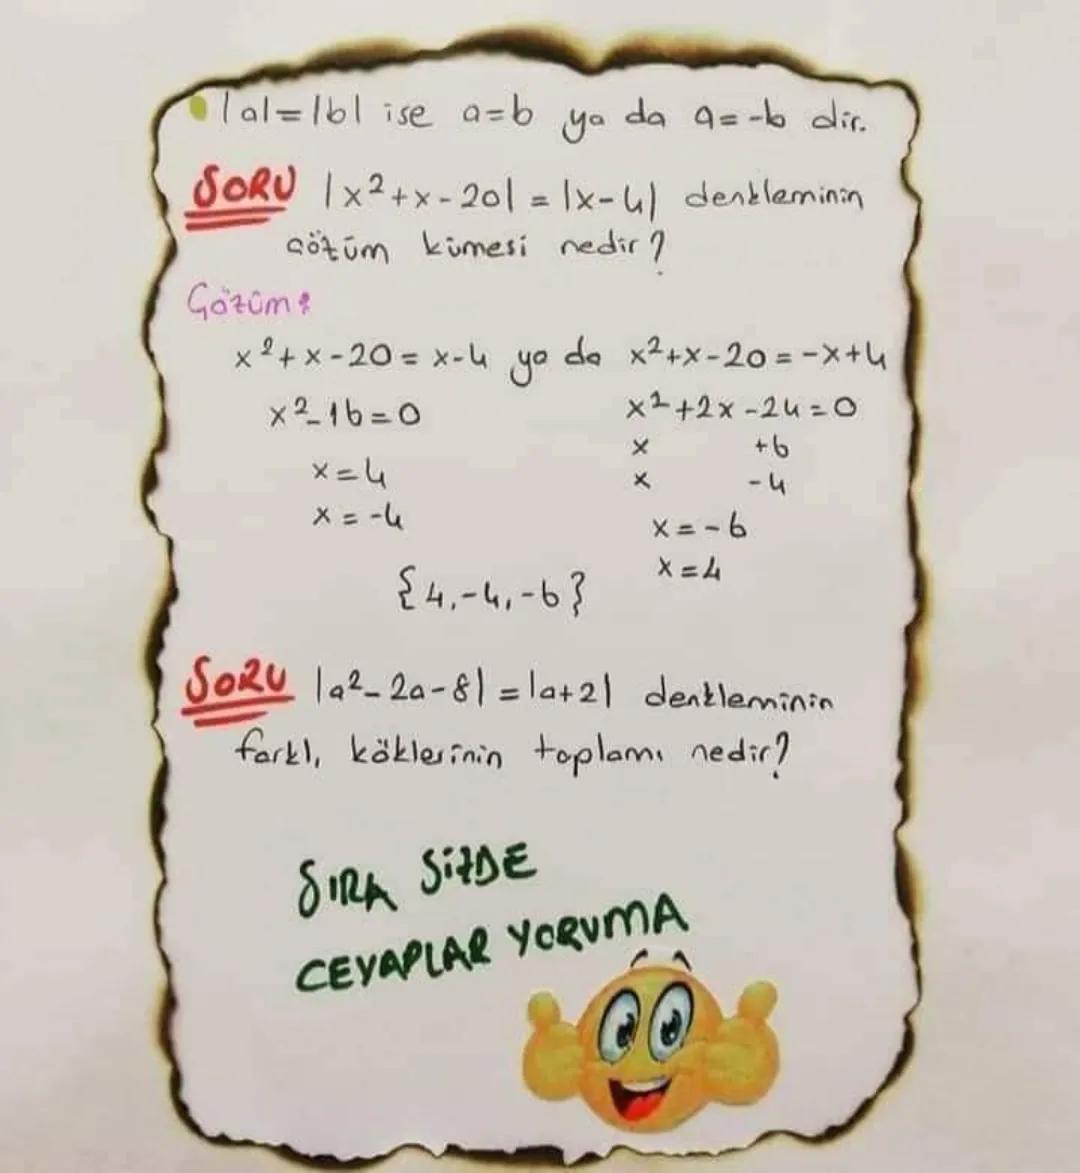 |a|=|b| ise a=b ya da a=-b dir.
SORU |x²+x-20| = |x-4| denkleminin
çözüm kümesi nedir?
Çözüm:
x²+x-20=x-4 ya da x²+x-20=-x+4
x²-16=0 x²+2x-24=0
x +6
x=4 x -4
x=-4 x=-6
x=4
{4,-4,-6}
SORU |a²-2a-8|=|a+2| denkleminin
farklı köklerinin toplamı nedir?
SIRA SİZDE
CEVAPLAR YORUMA